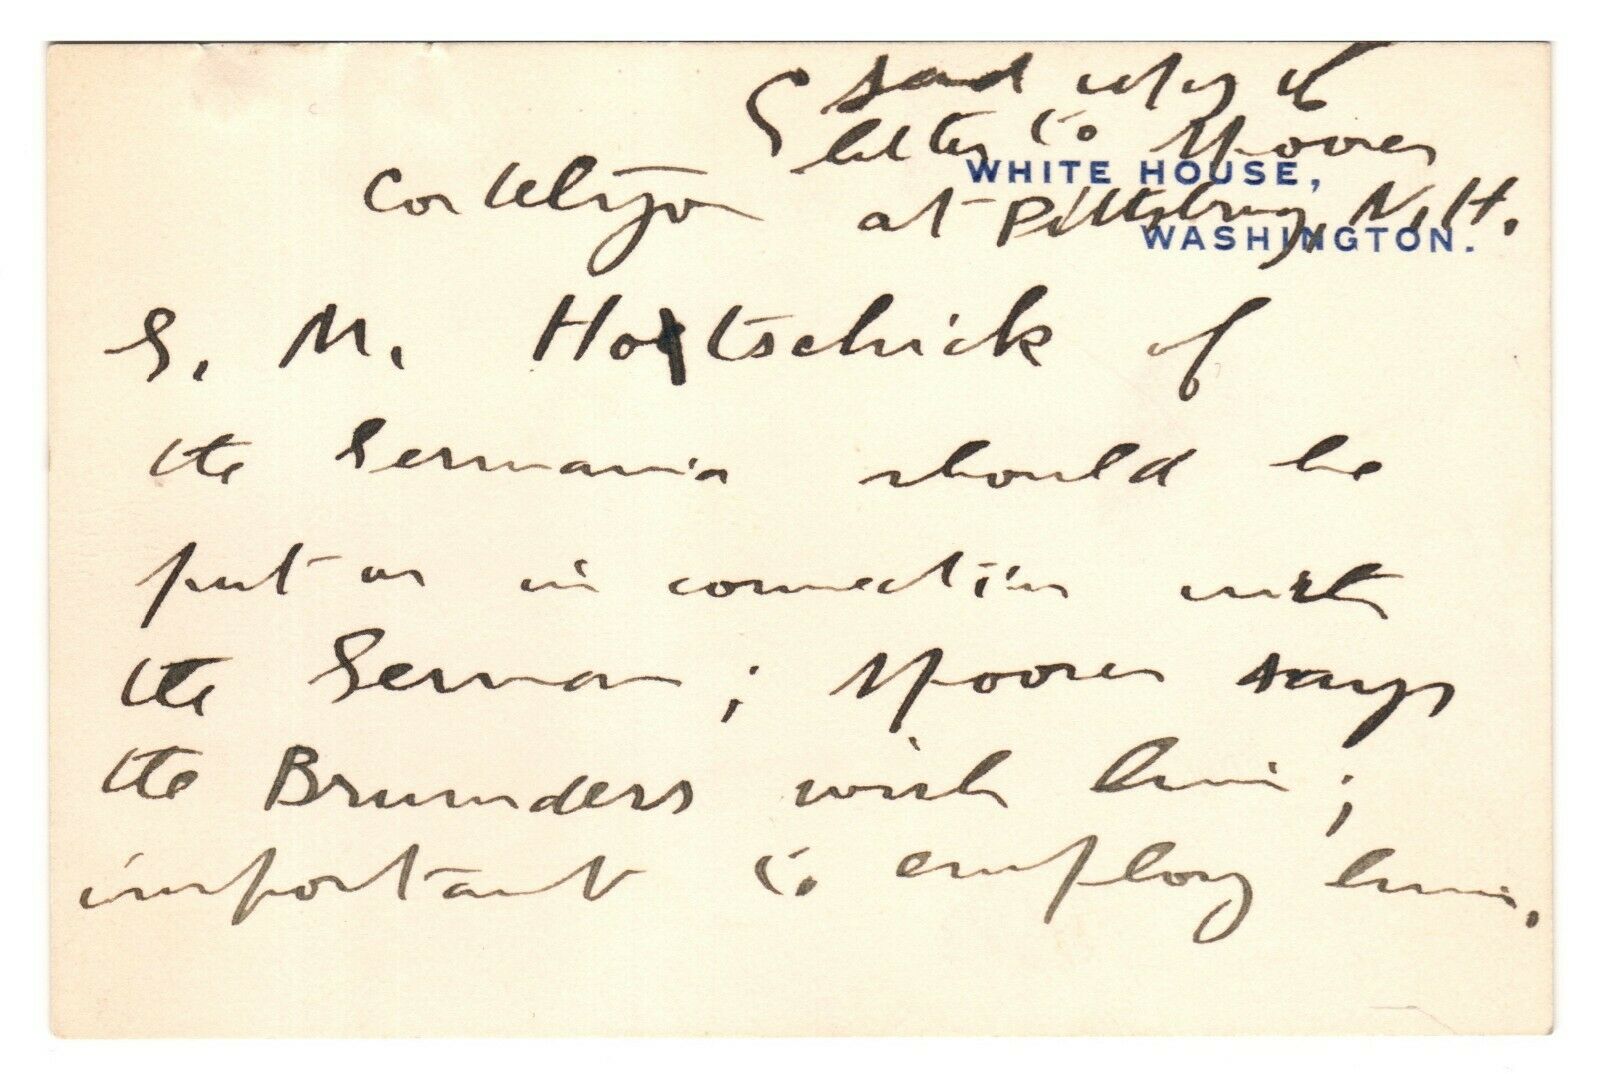 Send copy of
letter to Moores
WHITE HOUSE,
Cortelyou at Pittsburg, N.H.
WASHINGTON.
G. M. Hottschick of
the Germania should be
put on in connection with
the German; Moores says
the Brumders wish him;
important to employ him.